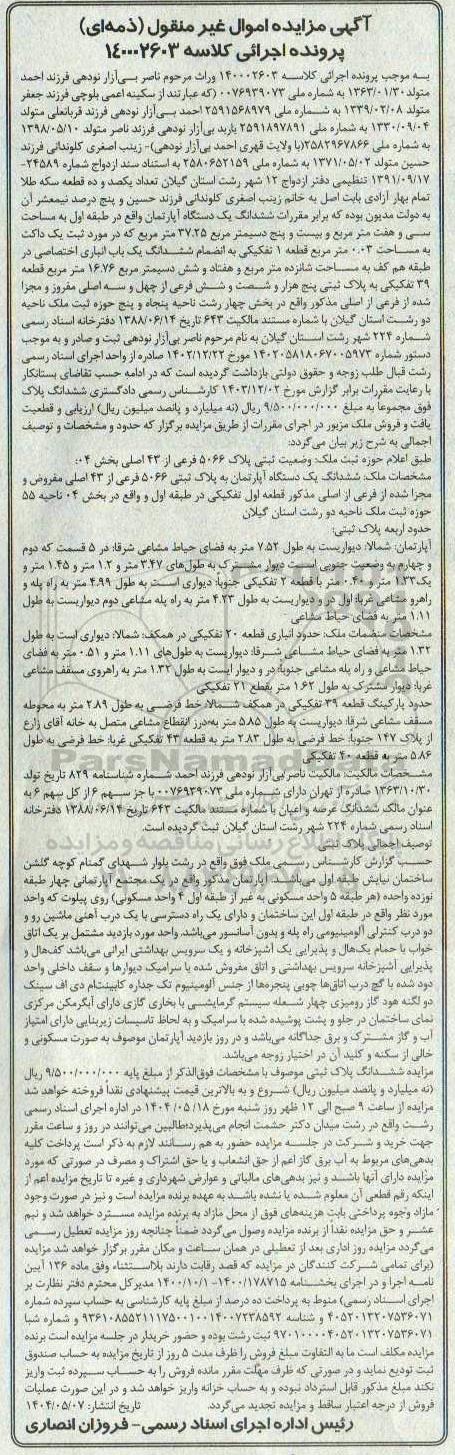 آگهی مزایده اموال غیر منقول (ذمه‌ای)
پرونده اجرائی کلاسه ۱۴۰۰۰۲۶۰۳
به موجب پرونده اجرائی کلاسه ۱۴۰۰۰۲۶۰۳ وراث مرحوم ناصر بی‌آزار نودهی فرزند احمد
متولد ۱۳۶۳/۰۱/۳۰ به شماره ملی ۰۰۷۶۹۳۹۰۷۳ (که عبارتند از سکینه اعمی بلوچی فرزند جعفر
متولد ۱۳۳۹/۰۲/۰۸ به شماره ملی ۲۵۹۱۵۶۸۹۷۹ احمد بی‌آزار نودهی فرزند قربانعلی متولد
۱۳۳۰/۰۹/۰۴ به شماره ملی ۲۵۹۱۸۹۷۸۹۱ باربد بی‌آزار نودهی فرزند ناصر متولد ۱۳۹۸/۰۵/۱۰
به شماره ملی ۲۵۸۲۹۶۷۸۶۶(با ولایت قهری احمد بی‌آزار نودهی)- زینب اصغری کلوندانی فرزند
حسین متولد ۱۳۷۱/۰۵/۰۲ به شماره ملی ۲۵۸۰۶۵۲۱۵۹ به استناد سند ازدواج شماره ۲۴۵۸۹-
۱۳۹۱/۰۹/۱۷ تنظیمی دفتر ازدواج ۱۲ شهر رشت استان گیلان تعداد یکصد و ده قطعه سکه طلا
تمام بهار آزادی بابت اصل به خانم زینب اصغری کلوندانی فرزند حسین و پنج درصد نیمعشر آن
به دولت مدیون بوده که برابر مقررات ششدانگ یک دستگاه آپارتمان واقع در طبقه اول به مساحت
سی و هفت متر مربع و بیست و پنج دسیمتر مربع ۳۷.۲۵ متر مربع که در مورد ثبت یک داکت
به مساحت ۰.۰۳ متر مربع قطعه ۱ تفکیکی به انضمام ششدانگ یک باب انباری اختصاصی در
طبقه هم کف به مساحت شانزده متر مربع و هفتاد و شش دسیمتر مربع ۱۶.۷۶ متر مربع قطعه
۳۹ تفکیکی به پلاک ثبتی پنج هزار و شصت و شش فرعی از چهل و سه اصلی مفروز و مجزا
شده از فرعی از اصلی مذکور واقع در بخش چهار رشت ناحیه پنجاه و پنج حوزه ثبت ملک ناحیه
دو رشت استان گیلان با شماره مستند مالکیت ۶۴۳ تاریخ ۱۳۸۸/۰۶/۱۴ دفترخانه اسناد رسمی
شماره ۲۲۴ شهر رشت استان گیلان به نام مرحوم ناصر بی‌آزار نودهی ثبت و صادر و به موجب
دستور شماره ۱۴۰۲۰۵۸۱۸۰۶۷۰۰۵۹۷۳ مورخ ۱۴۰۲/۱۲/۲۲ صادره از واحد اجرای اسناد رسمی
رشت قبال طلب زوجه و حقوق دولتی بازداشت گردیده است که در ادامه حسب تقاضای بستانکار
با رعایت مقررات برابر گزارش مورخ ۱۴۰۳/۱۲/۰۲ کارشناس رسمی دادگستری ششدانگ پلاک
فوق مجموعا به مبلغ ۹/۵۰۰/۰۰۰/۰۰۰ ریال (نه میلیارد و پانصد میلیون ریال) ارزیابی و قطعیت
یافت و فروش ملک مزبور در اجرای مقررات از طریق مزایده برگزار که حدود و مشخصات و توصیف
اجمالی به شرح زیر بیان می‌گردد:
طبق اعلام حوزه ثبت ملک: وضعیت ثبتی پلاک ۵۰۶۶ فرعی از ۴۳ اصلی بخش ۰۴:
مشخصات ملک: ششدانگ یک دستگاه آپارتمان به پلاک ثبتی ۵۰۶۶ فرعی از ۴۳ اصلی مفروض و
مجزا شده از فرعی از اصلی مذکور قطعه اول تفکیکی در طبقه اول و واقع در بخش ۰۴ ناحیه ۵۵
حوزه ثبت ملک ناحیه دو رشت استان گیلان
حدود اربعه پلاک ثبتی:
آپارتمان: شمالا: دیواریست به طول ۷.۵۲ متر به فضای حیاط مشاعی شرقا: در ۵ قسمت که دوم
و چهارم به وضعیت جنوبی است دیوار مشترک به طول‌های ۳.۴۷ متر و ۱.۲ متر و ۱.۴۵ متر و
یک ۱.۳۳ متر و ۰.۴۰ متر با قطعه ۲ تفکیکی جنوبا: دیواری است به طول ۴.۹۹ متر به راه پله و
راهرو مشاعی غربا: اول در و دیواریست به طول ۴.۲۳ متر به راه پله مشاعی دوم دیواریست به طول
۱.۱۱ متر به فضای حیاط مشاعی
مشخصات منضمات ملک: حدود انباری قطعه ۲۰ تفکیکی در همکف: شمالا: دیواری است به طول
۱.۳۲ متر به فضای حیاط مشاعی شرقا: دیواریست به طول‌های ۱.۱۱ متر و ۰.۵۱ متر به فضای
حیاط مشاعی و راه پله مشاعی جنوبا: در و دیوار ایست به طول ۱.۳۲ متر به راهروی مسقف مشاعی
غربا: دیوار مشترک به طول ۱.۶۲ متر بقطع ۲۱ تفکیکی
حدود پارکینگ قطعه ۳۹ تفکیکی در همکف شمالا: خط فرضی به طول ۲.۸۹ متر به محوطه
مسقف مشاعی شرقا: دیواریست به طول ۵.۸۵ متر به درز انقطاع مشاعی متصل به خانه آقای زارع
از پلاک ۱۴۷ جنوبا: خط فرضی به طول ۲.۸۳ متر به قطعه ۴۳ تفکیکی غربا: خط فرضی به طول
۵.۸۶ متر به قطعه ۴۰ تفکیکی
مشخصات مالکیت: مالکیت ناصر بی‌آزار نودهی فرزند احمد شماره شناسنامه ۸۲۹ تاریخ تولد
۱۳۶۳/۱۰/۳۰ صادره از تهران دارای شماره ملی ۰۰۷۶۹۳۹۰۷۳ با جز سهم ۶ از کل سهم ۶ به
عنوان مالک ششدانگ عرصه و اعیان با شماره مستند مالکیت ۶۴۳ تاریخ ۱۳۸۸/۰۶/۱۴ دفترخانه
اسناد رسمی شماره ۲۲۴ شهر رشت استان گیلان ثبت گردیده است.
توصیف اجمالی پلاک ثبتی
حسب گزارش کارشناس رسمی ملک فوق واقع در رشت بلوار شهدای گمنام کوچه گلشن
ساختمان نیایش طبقه اول می‌باشد. آپارتمان مذکور واقع در یک مجتمع آپارتمانی چهار طبقه
نوزده واحده (هر طبقه ۵ واحد مسکونی به غیر از طبقه اول ۴ واحد مسکونی) روی پیلوت که واحد
مورد نظر واقع در طبقه اول این ساختمان و دارای یک راه دسترسی با یک درب آهنی ماشین رو و
دو درب کنترلی آلومینیومی راه پله و بدون آسانسور می‌باشد. واحد مورد بازدید مشتمل بر یک اتاق
خواب با حمام یک‌هال و پذیرایی یک آشپزخانه و یک سرویس بهداشتی ایرانی می‌باشد کف‌هال و
پذیرایی آشپزخانه سرویس بهداشتی و اتاق مفروش شده با سرامیک دیوارها و سقف داخلی واحد
دود شده با گچ درب اتاق‌ها چوبی پنجره‌ها از جنس آلومینیوم تک جداره کابینت‌ام دی اف سینک
دو لگنه هود گاز رومیزی چهار شعله سیستم گرمایشی با بخاری گازی دارای آبگرمکن مرکزی
نمای ساختمان در جلو و پشت پوشیده شده با سرامیک و به لحاظ تاسیسات زیربنایی دارای امتیاز
آب و گاز مشترک و برق جداگانه می‌باشد و در روز بازدید آپارتمان موصوف به صورت مسکونی و
خالی از سکنه و کلید آن در اختیار زوجه می‌باشد.
مزایده ششدانگ پلاک ثبتی موصوف با مشخصات فوق‌الذکر از مبلغ پایه ۹/۵۰۰/۰۰۰/۰۰۰ ریال
(نه میلیارد و پانصد میلیون ریال) شروع و به بالاترین قیمت پیشنهادی نقدا فروخته خواهد شد
مزایده از ساعت ۹ صبح الی ۱۲ ظهر روز شنبه مورخ ۱۴۰۴/۰۵/۱۸ در اداره اجرای اسناد رسمی
رشت واقع در رشت میدان دکتر حشمت انجام می‌پذیرد؛طالبین می‌توانند در روز و ساعت مقرر
جهت خرید و شرکت در جلسه مزایده حضور به هم رسانند لازم به ذکر است پرداخت کلیه
بدهی‌های مربوط به آب برق گاز اعم از حق انشعاب و یا حق اشتراک و مصرف در صورتی که مورد
مزایده دارای آنها باشد و نیز بدهی‌های مالیاتی و عوارض شهرداری و غیره تا تاریخ مزایده اعم از
اینکه رقم قطعی آن معلوم شده یا نشده باشد به عهده برنده مزایده است و نیز در صورت وجود
مازاد وجوه پرداختی بابت هزینه‌های فوق از محل مازاد به برنده مزایده مسترد خواهد شد و نیم
عشر و حق مزایده نقدا از برنده مزایده وصول می‌گردد ضمناً چنانچه روز مزایده تعطیل رسمی
می‌گردد مزایده روز اداری بعد از تعطیلی در همان ساعت و مکان مقرر برگزار خواهد شد مزایده
(برای تمامی شرکت کنندگان در مزایده که قصد رقابت دارند بلااستثناء وفق ماده ۱۳۶ آیین
نامه اجرا و در اجرای بخشنامه ۱۴۰۰/۱۷۸۷۱۵-۱۴۰۰/۱۰/۱ مدیرکل محترم دفتر نظارت بر
اجرای اسناد رسمی) منوط به پرداخت ده درصد از مبلغ پایه کارشناسی به حساب سپرده شماره
۴۰۵۲۰۱۳۲۰۷۵۳۶۰۷۱ و شناسه ۹۳۶۱۰۸۵۵۲۱۱۱۷۵۰۰۱۰۰۱۴۰۰۷۲۳۸۵۹۲ و شماره شبا
۹۷۰۱۰۰۰۰۴۰۵۲۰۱۳۲۰۷۵۳۶۰۷۱ ثبت رشت بوده و حضور خریدار در جلسه مزایده است برنده
مزایده مکلف است ما به التفاوت مبلغ فروش را ظرف مدت ۵ روز از تاریخ مزایده به حساب صندوق
ثبت تودیع نماید و در صورتی که ظرف مهلت مقرر مانده فروش را به حساب سپرده ثبت واریز
نکند مبلغ مذکور قابل استرداد نبوده و به حساب خزانه واریز خواهد شد و در این صورت عملیات
فروش از درجه اعتبار ساقط و مزایده تجدید می‌گردد. تاریخ انتشار: ۱۴۰۴/۰۵/۰۷
رئیس اداره اجرای اسناد رسمی- فروزان انصاری